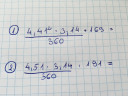 ① 4,41² · 3,14 · 169 =
360
② 4,51 · 3,14 · 191 =
360